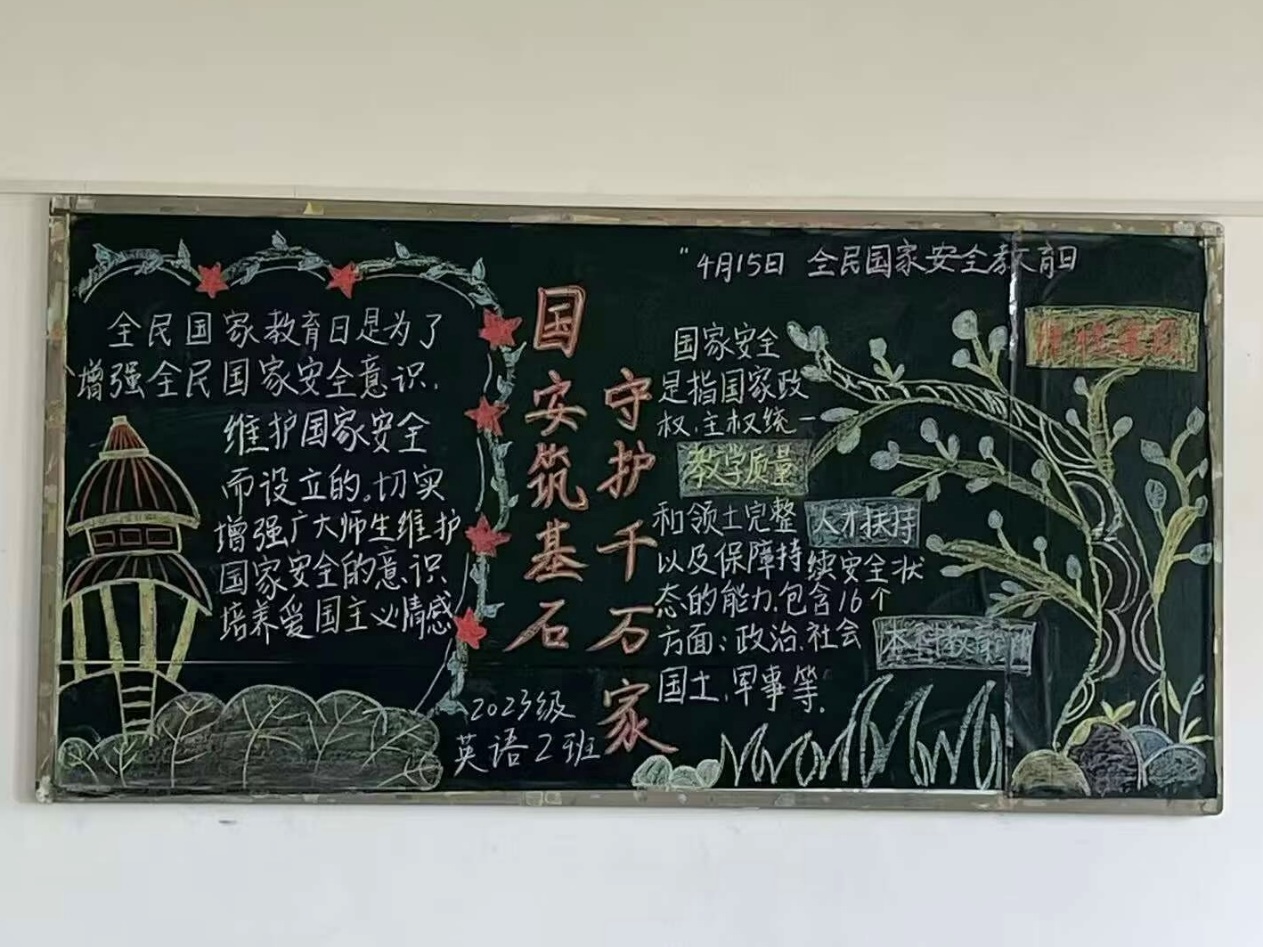 "4月15日 全民国家安全教育日
全民国家教育日是为了
增强全民国家安全意识,
维护国家安全
而设立的。切实
增强广大师生维护
国家安全的意识、
培养爱国主义情感
国安筑基石
守护千万家
2023级
英语2班
国家安全
是指国家政
权、主权统一
教学质量
和领土完整
人才扶持
以及保障持续安全状
态的能力,包含16个
方面:政治、社会
本科教育
国土,军事等,